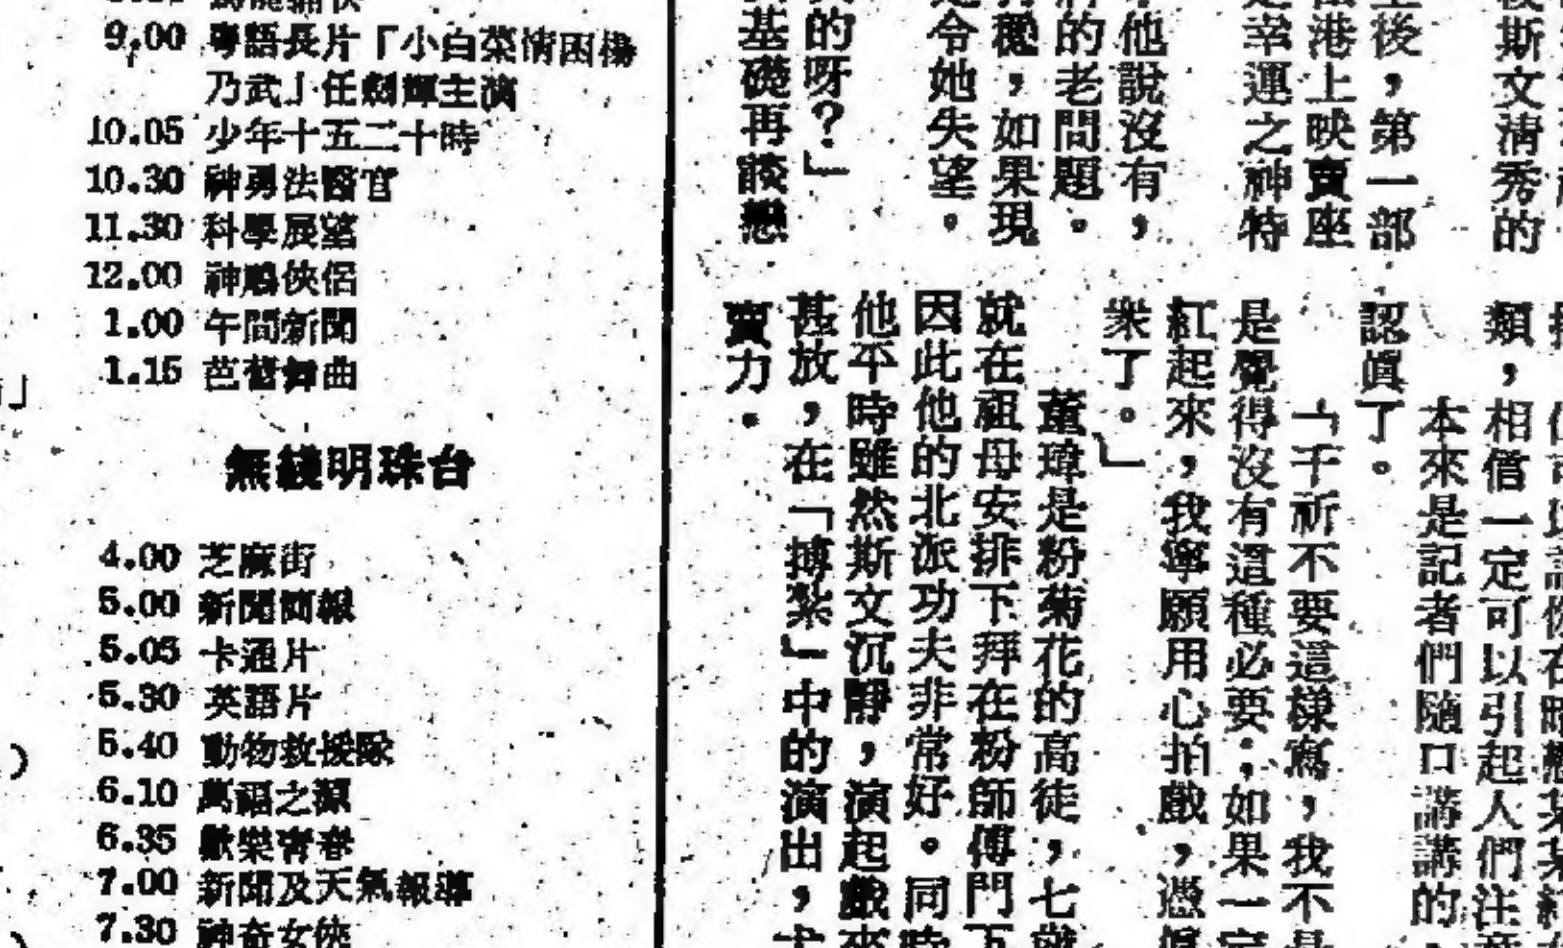 9.00 粵語長片「小白菜情困楊
乃武」任劍輝主演
10.05 少年十五二十時
10.30 神勇法醫官
11.30 科學展望
12.00 神鵰俠侶
1.00 午間新聞
1.15 芭蕾舞曲
無綫明珠台
4.00 芝麻街
5.00 新聞簡報
5.05 卡通片
5.30 英語片
5.40 動物救援隊
6.10 萬福之源
6.35 歡樂青春
7.00 新聞及天氣報導
7.30 神奇女俠
斯文清秀的
後，第一部
港上映賣座
幸運之神特
他說沒有，
的老問題。
穩，如果現
令她失望。
的呀？」
基礎再談戀
類，相信一定可以引起人們注
本來是記者們隨口講講的
認眞了。
「千祈不要這樣寫，我不
是覺得沒有這種必要；如果一定
紅起來，我寧願用心拍戲，憑
衆了。」
董瑋是粉菊花的高徒，七歲
就在祖母安排下拜在粉師傅門下
因此他的北派功夫非常好。同時
他平時雖然斯文沉靜，演起戲來
甚放，在「搏紮」中的演出，
賣力。